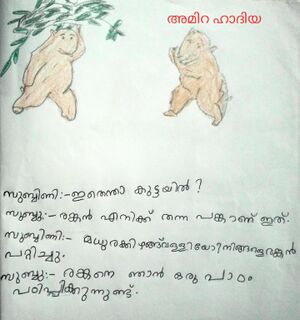 അമിറ ഹാദിയ
സുബ്ബിണി:-ഇതെന്താ കുട്ടയിൽ ?
സുബ്ബു:- രങ്കൻ എനിക്ക് തന്ന പങ്കാണ് ഇത്.
സുബ്ബിണി:- മധുരക്കിഴങ്ങ് വള്ളിയോ നിങ്ങളെ രങ്കൻ
പറ്റിച്ചു.
സുബ്ബു:- രങ്കനെ ഞാൻ ഒരു പാഠം
പഠിപ്പിക്കുന്നുണ്ട്.